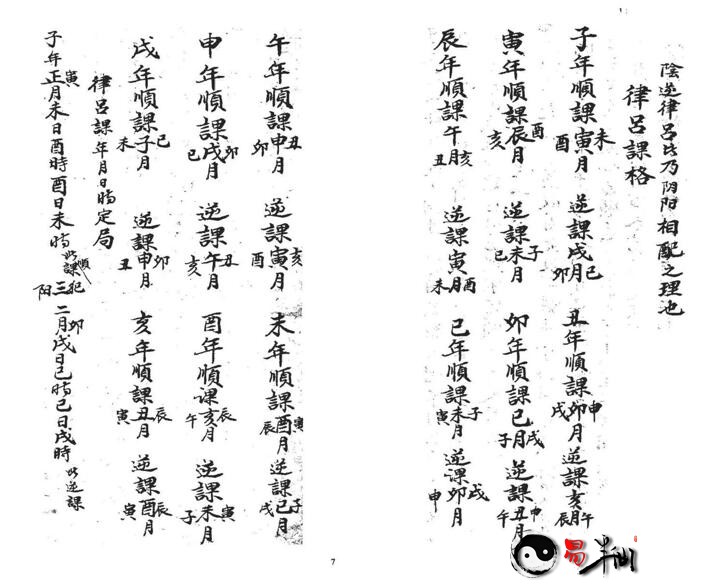 陰逆律呂此乃阴阳相配之理也
律呂課格
子年順課寅月未酉 逆課戌月巳卯 丑年順課卯月申戌 逆課亥月午辰
寅年順課辰月酉亥 逆課未月子巳 卯年順課巳月戌子 逆課丑月申午
辰年順課午月亥丑 逆課寅月酉未 巳年順課未月子寅 逆课卯月戌申
午年順課申月丑卯 逆課寅月亥酉 未年順課酉月寅辰 逆課巳月子戌
申年順課戌月卯巳 逆課午月丑亥 酉年順课亥月辰午 逆課未月寅子
戌年順課子月巳未 逆課申月卯丑 亥年順課丑月辰寅 逆課酉月辰寅
律呂課年月日時定局
子年正月寅未日酉時酉日未時此順課犯三阳 二月卯戌日巳時巳日戌時此逆課
7
易半仙